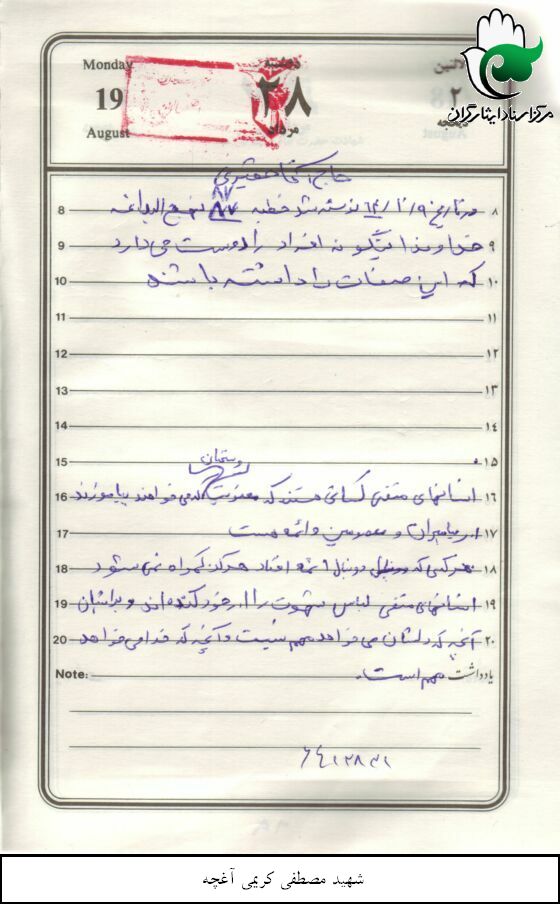 مرکز اسناد ایثارگران
Monday
19
August
دوشنبه
۲۸
مرداد
حاج آقا
8 در تاریخ ۶۴/۲/۹ نوشته شد خطبه ۸۷ ۸۷ نهج البلاغه ۸
9 خداوند اینگونه افراد را دوست می دارد ۹
10 که این صفات را داشته باشند ۱۰
11 ۱۱
12 ۱۲
13 ۱۳
14 ۱۴
15 ۱۵
16 انسانهای متقی کسانی هستند که معنویت که می خواهند بیاموزند ۱۶
17 از پیامبران و معصومین و ائمه هست ۱۷
18 هر کسی که دنبال ائمه افتاد هرگز گمراه نمی شود ۱۸
19 انسانهای متقی لباس شهوت را از خود کنده اند و برایشان ۱۹
20 آنچه که دلشان می خواهد مهم نیست و آنچه که خدا می خواهد ۲۰
Note: یادداشت مهم است.
شهید مصطفی کریمی آغچه